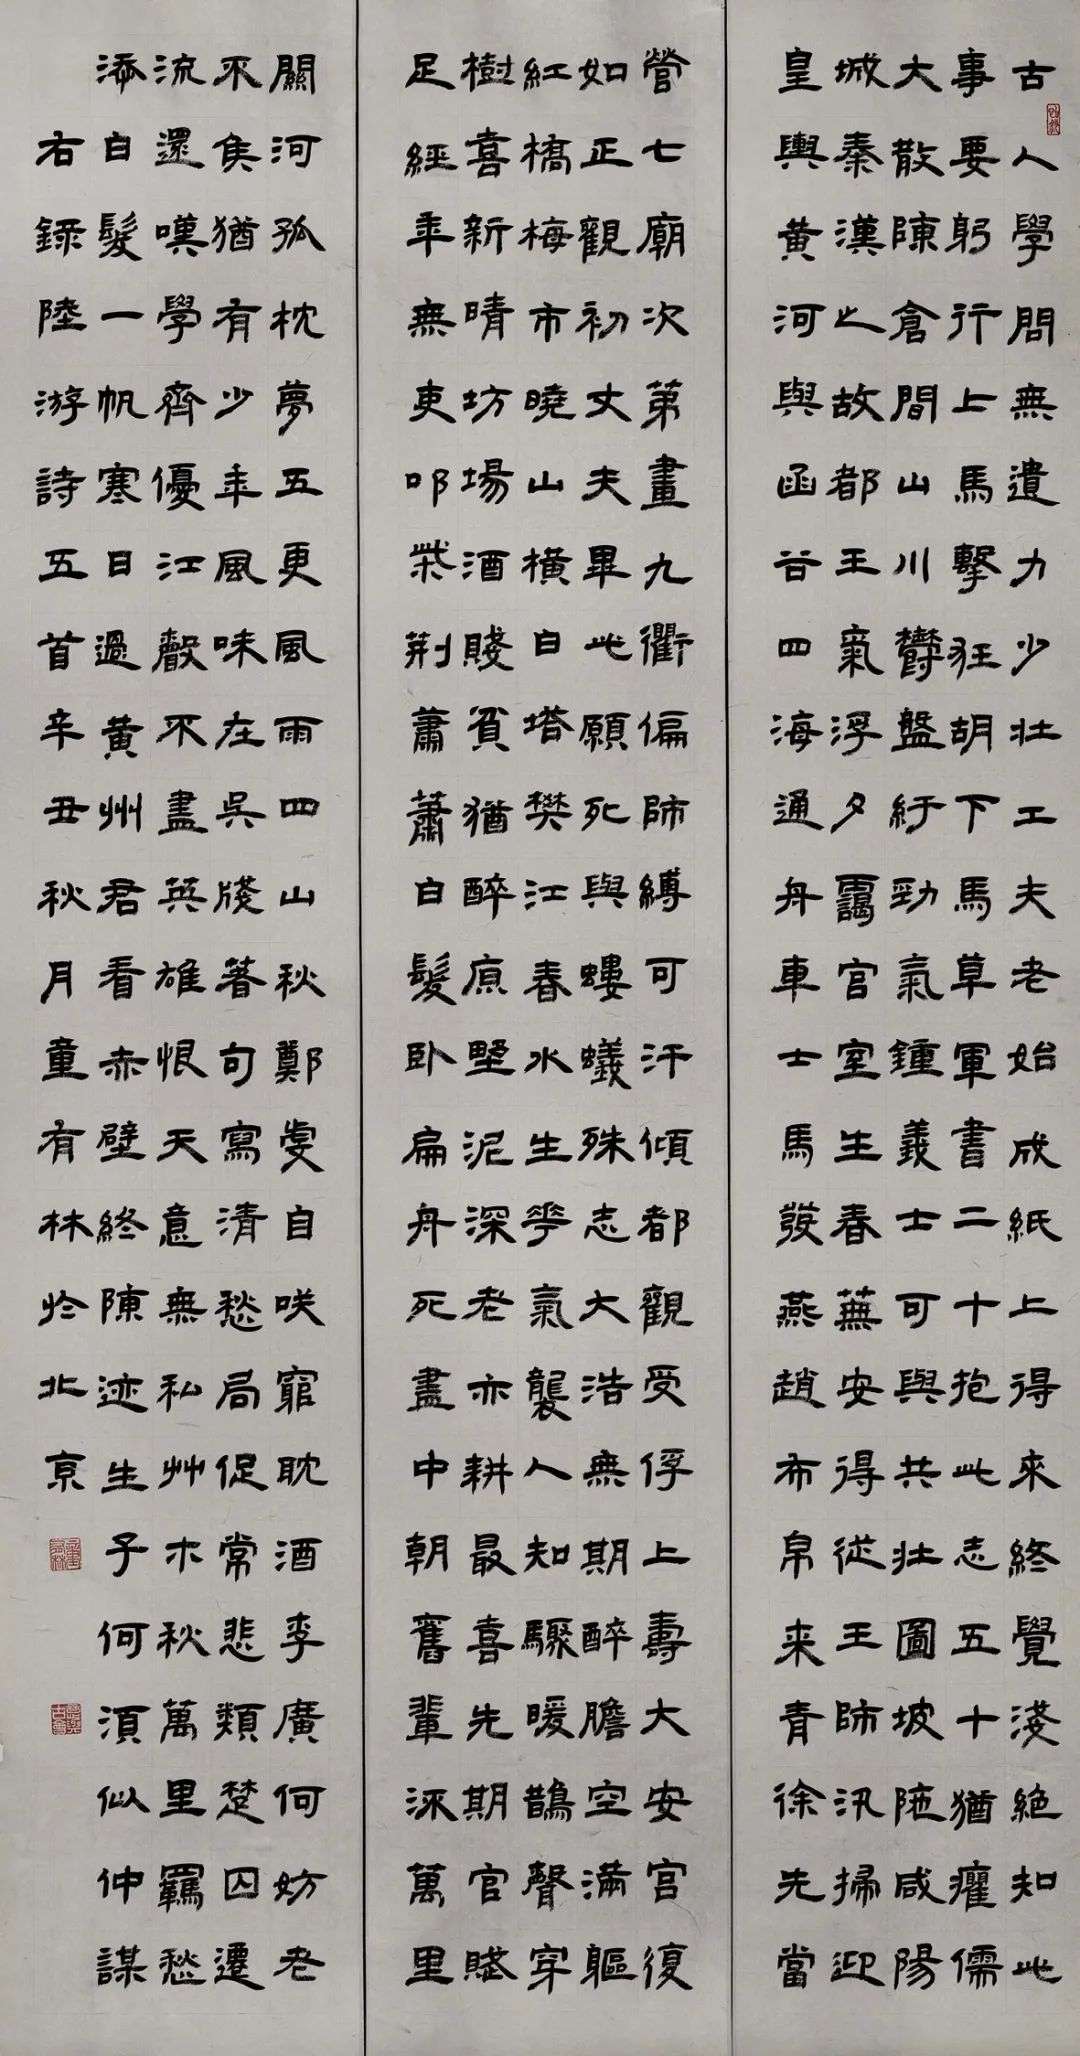 古人學問無遺力少壯工夫老始成紙上得來終覺淺絕知此
事要躬行上馬擊狂胡下馬草軍書二十抱此志五十猶癯儒
大散陳倉間山川鬱盤紆勁氣鍾義士可與共壯圖坡陁咸陽
城秦漢之故都王氣浮夕靄宮室生春蕪安得從王師汛掃迎
皇輿黃河與函谷四海通舟車士馬發燕趙布帛来青徐先當
營七廟次第畫九衢偏師縛可汗傾都觀受俘上壽大安宮復
如正觀初丈夫畢此願死與螻蟻殊志大浩無期醉膽空滿軀
紅橋梅市曉山橫白塔樊江春水生花氣襲人知驟暖鵲聲穿
樹喜新晴坊場酒賤貧猶醉原野泥深老亦耕最喜先期官賦
足經年無吏叩柴荊蕭蕭白髮臥扁舟死盡中朝舊輩流萬里
關河孤枕夢五更風雨四山秋鄭虔自咲窮耽酒李廣何妨老
不矦猶有少年風味在吳牋著句寫清愁局促常悲類楚囚遷
流還嘆學齊優江聲不盡英雄恨天意無私艸木秋萬里羈愁
添白髮一帆寒日過黃州君看赤壁終陳迹生子何須似仲謀
右錄陸游詩五首辛丑秋月童有林於北京